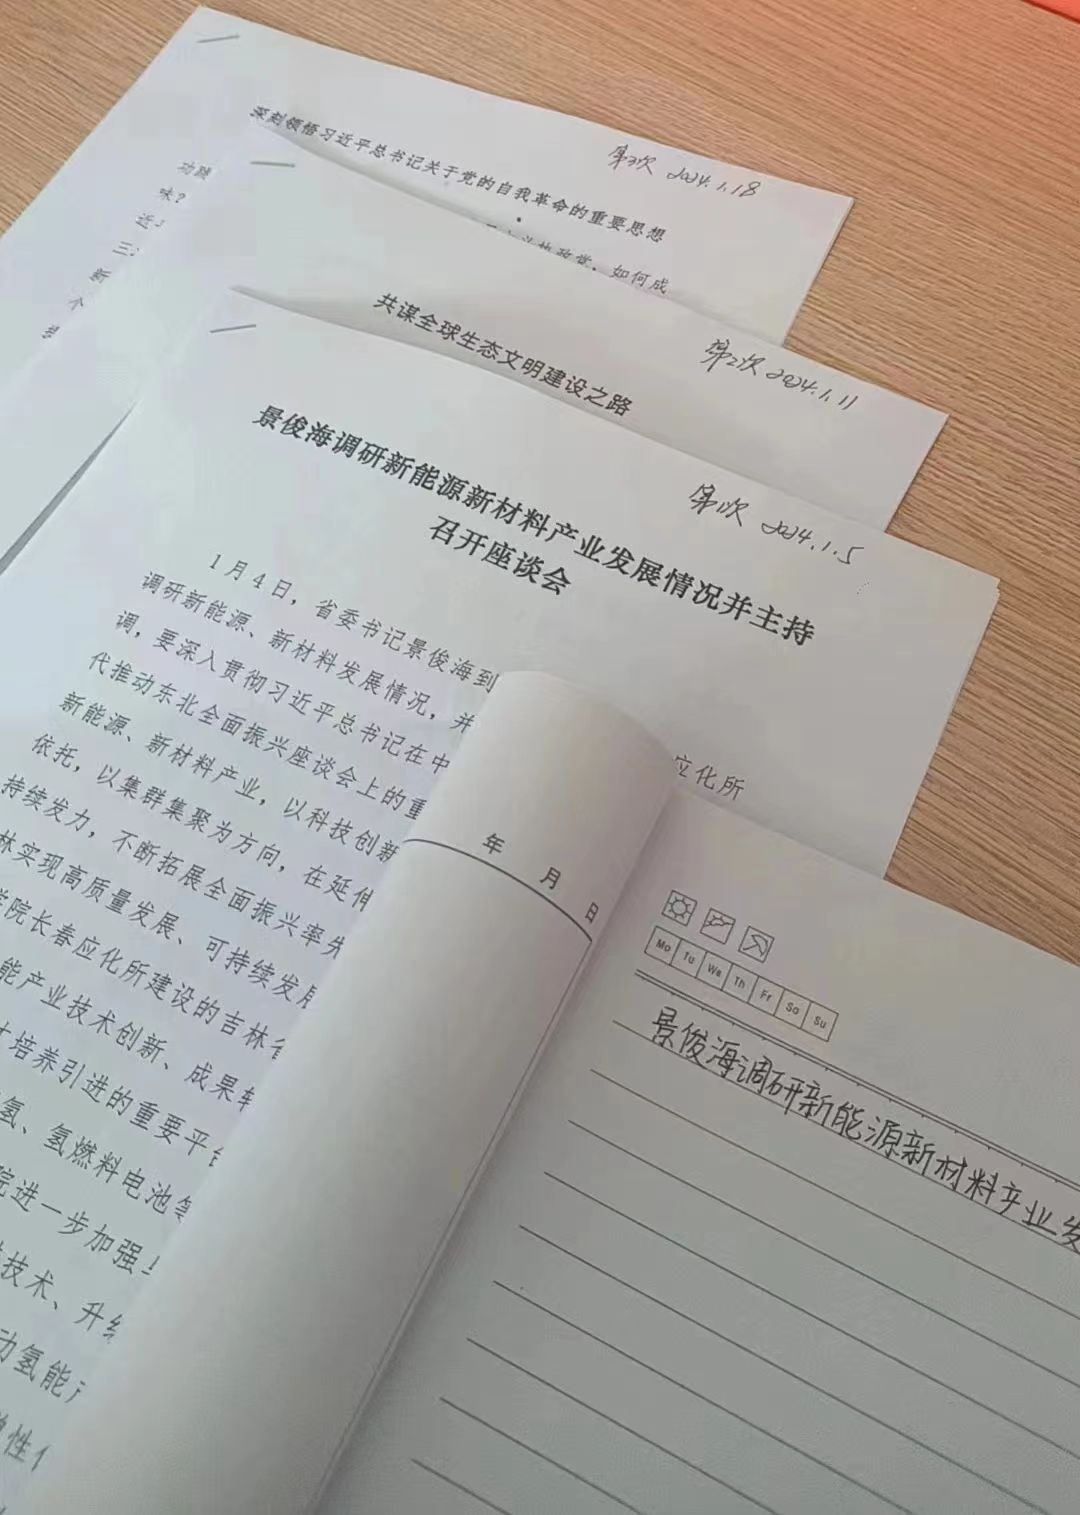 深刻领悟习近平总书记关于党的自我革命的重要思想
第3次 2024.1.18
义执政党，如何成
功跳
味？
近
三
新
个
共谋全球生态文明建设之路
第2次 2024.1.11
景俊海调研新能源新材料产业发展情况并主持
召开座谈会
第1次 2024.1.5
1月4日，省委书记景俊海到
应化所
调研新能源、新材料发展情况，并
调，要深入贯彻习近平总书记在中
代推动东北全面振兴座谈会上的重
新能源、新材料产业，以科技创新
依托，以集群集聚为方向，在延伸
持续发力，不断拓展全面振兴率先
林实现高质量发展、可持续发展
学院长春应化所建设的吉林省
能产业技术创新、成果转
才培养引进的重要平台
氢、氢燃料电池等
院进一步加强
技术、升级
动氢能产
性
年 月 日
Mo Tu We Th Fr Sa Su
景俊海调研新能源新材料产业发